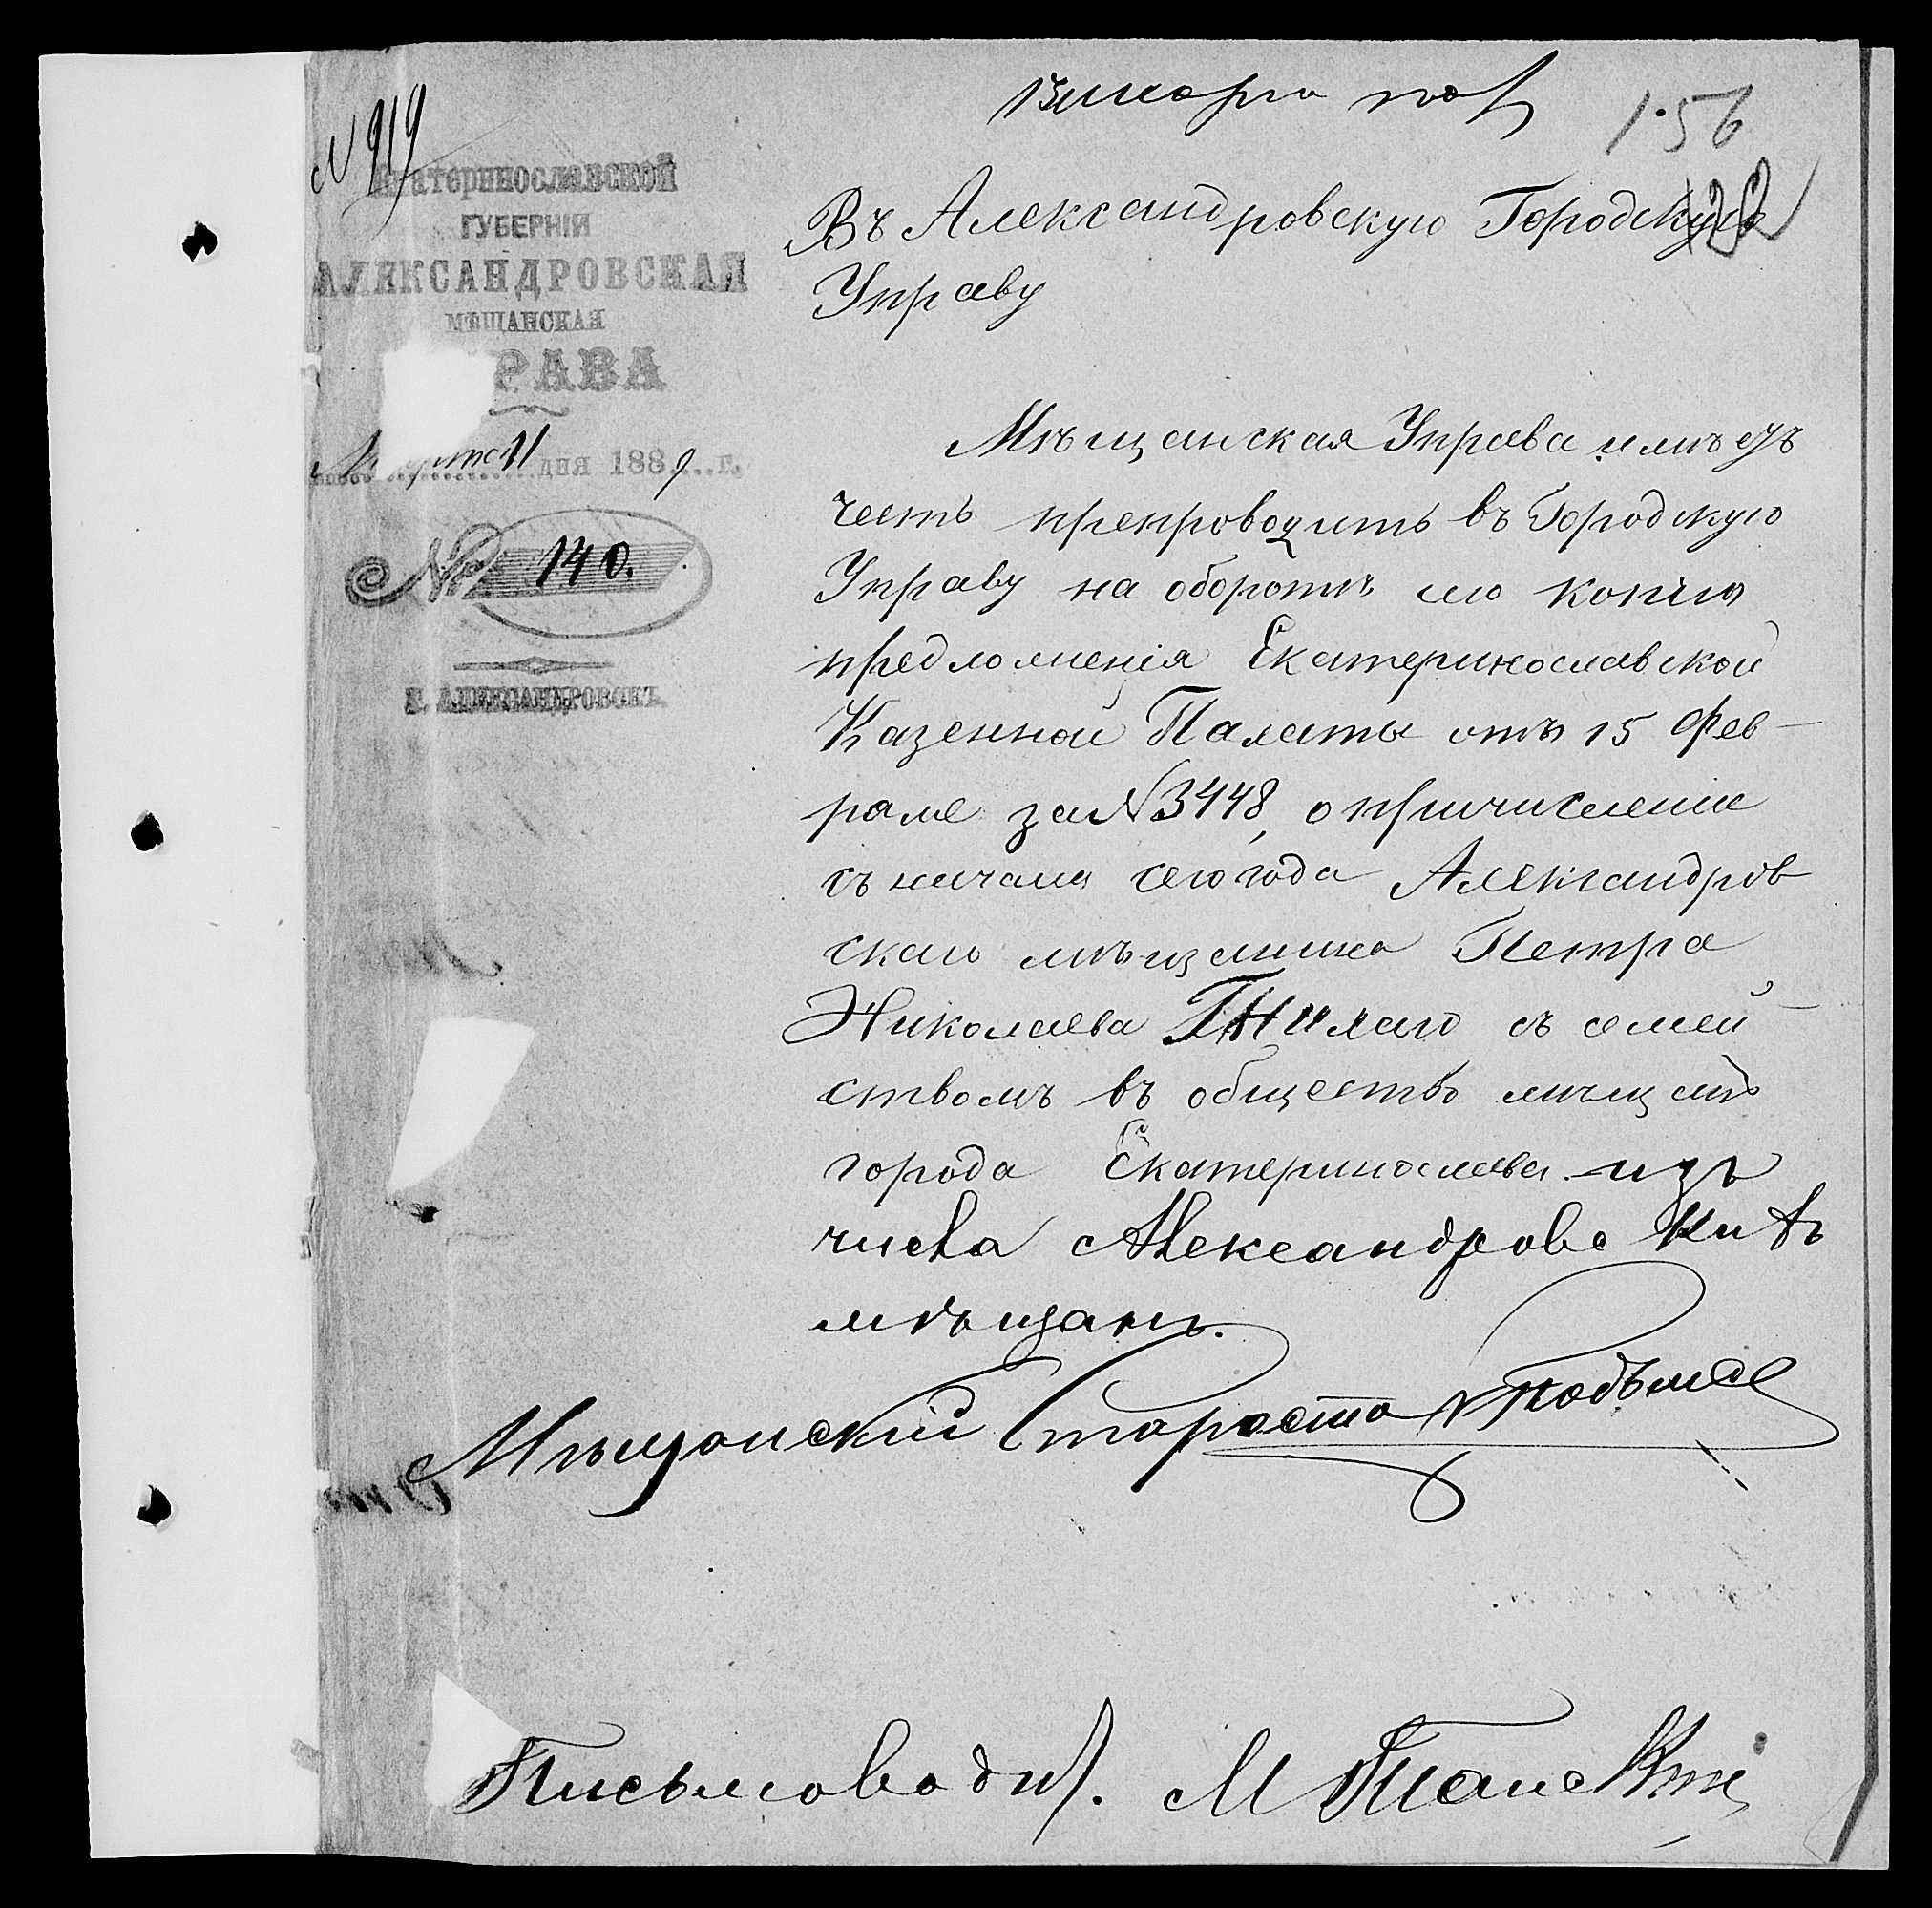 N 919
1·56
Екатеринославской
ГУБЕРНІИ
АЛЕКСАНДРОВСКАЯ
МѢЩАНСКАЯ
РАВА
11 дня 1889 г.
№ 140.
Г. АЛЕКСАНДРОВСКЪ.
Въ Александровскую Городскую
Управу
Мѣщанская Управа имѣетъ
честь препроводить въ Городскую
Управу на оборотѣ сего копію
предложенія Екатеринославской
Казенной Палаты отъ 15 Фев-
раля за N 3448, о причисленіи
съ начала сего года Александров
скаго мѣщанина Петра
Николаева Гнилаго съ семей-
ствомъ въ общество мѣщанъ
города Екатеринослава изъ
числа Александровскихъ
мѣщанъ.
Мѣщанскій Староста
Письмовод.